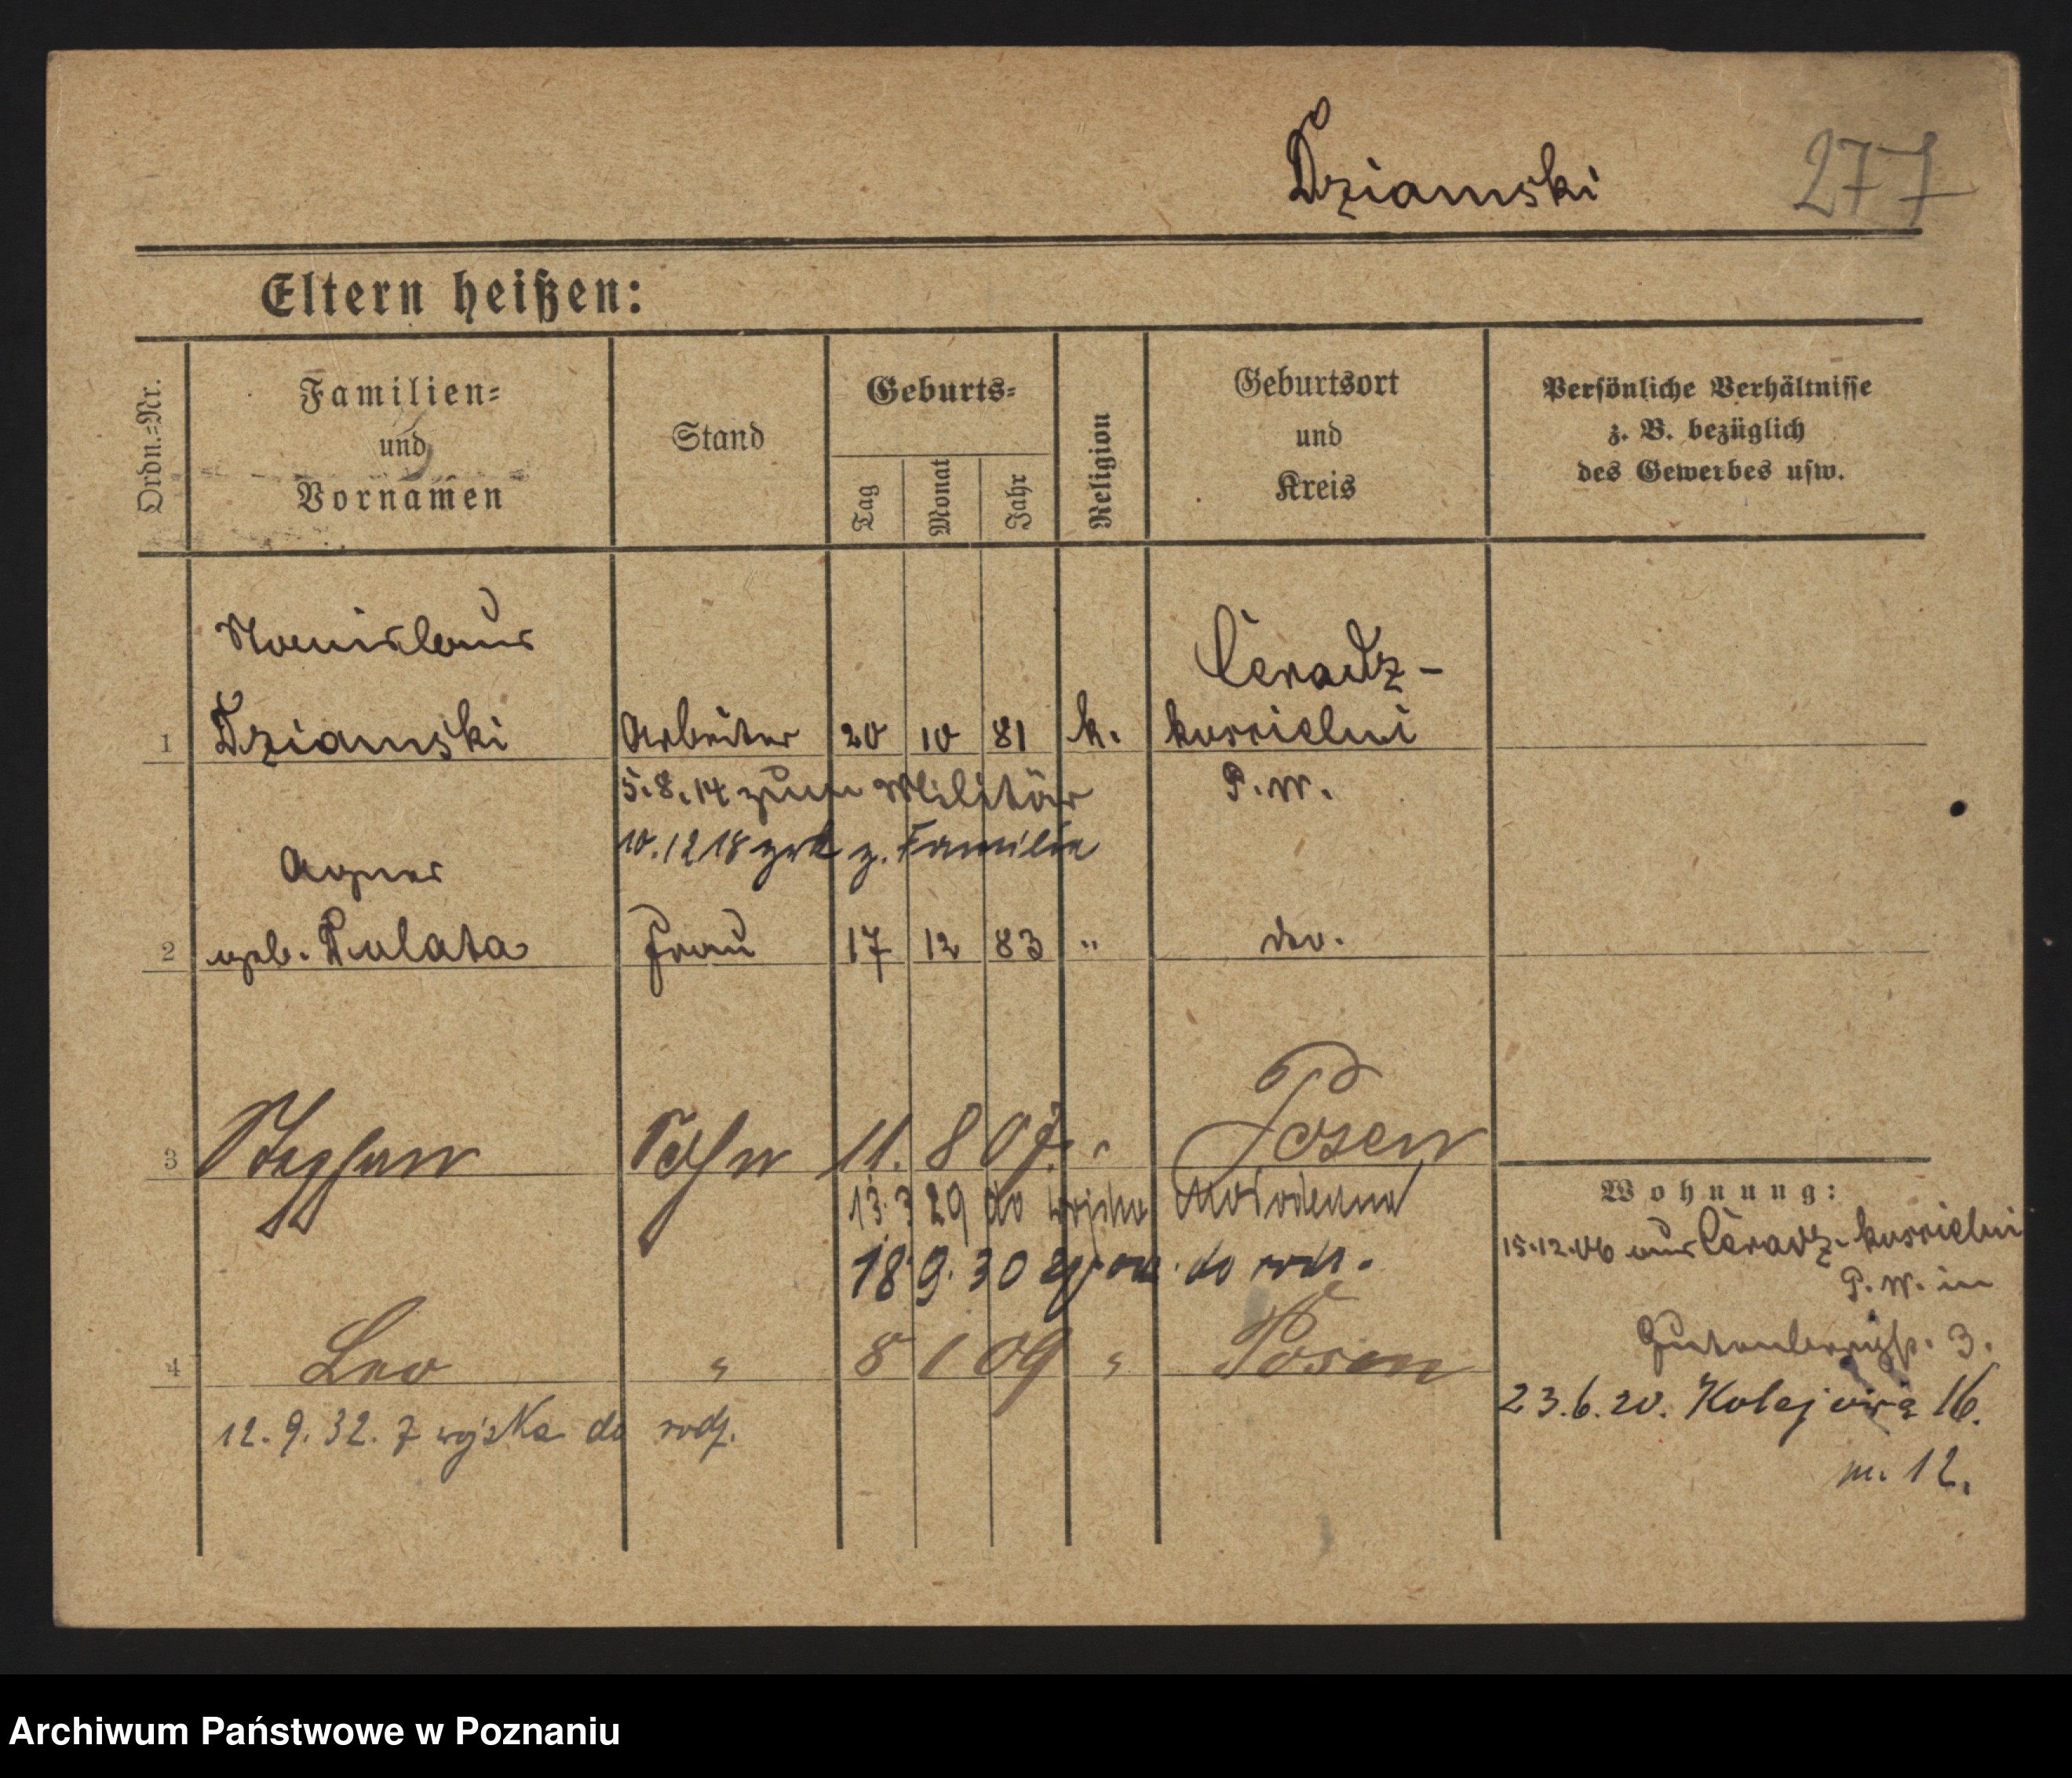 Dziamski 277
Eltern heißen:
Ordn.=Nr.
Familien=
und
Vornamen
Stand
Geburts=
Tag
Monat
Jahr
Religion
Geburtsort
und
Kreis
Persönliche Verhältnisse
z. B. bezüglich
des Gewerbes usw.
Stanislaus Ceradz-
1 Dziamski Arbeiter 20 10 81 k. koscielni
5.8.14 zum Militär P.W.
10.12 18 zrk z. Familie
Agnes
2 geb. Pulata Frau 17 12 83 " do.
3 Stephan Sohn 11. 8 07. " Posen
13.3 29 do wojska Mołodeczna
18 9. 30 do rodz.
4 Leo " 8 1 09 " Posen
12. 9. 32. z wojska do rodz.
Wohnung:
15.12.06 aus Ceradz-koscielni
P.W. in
Gutenbergstr. 3.
23.6.20. Kolejowa 16.
m. 12.
Archiwum Państwowe w Poznaniu